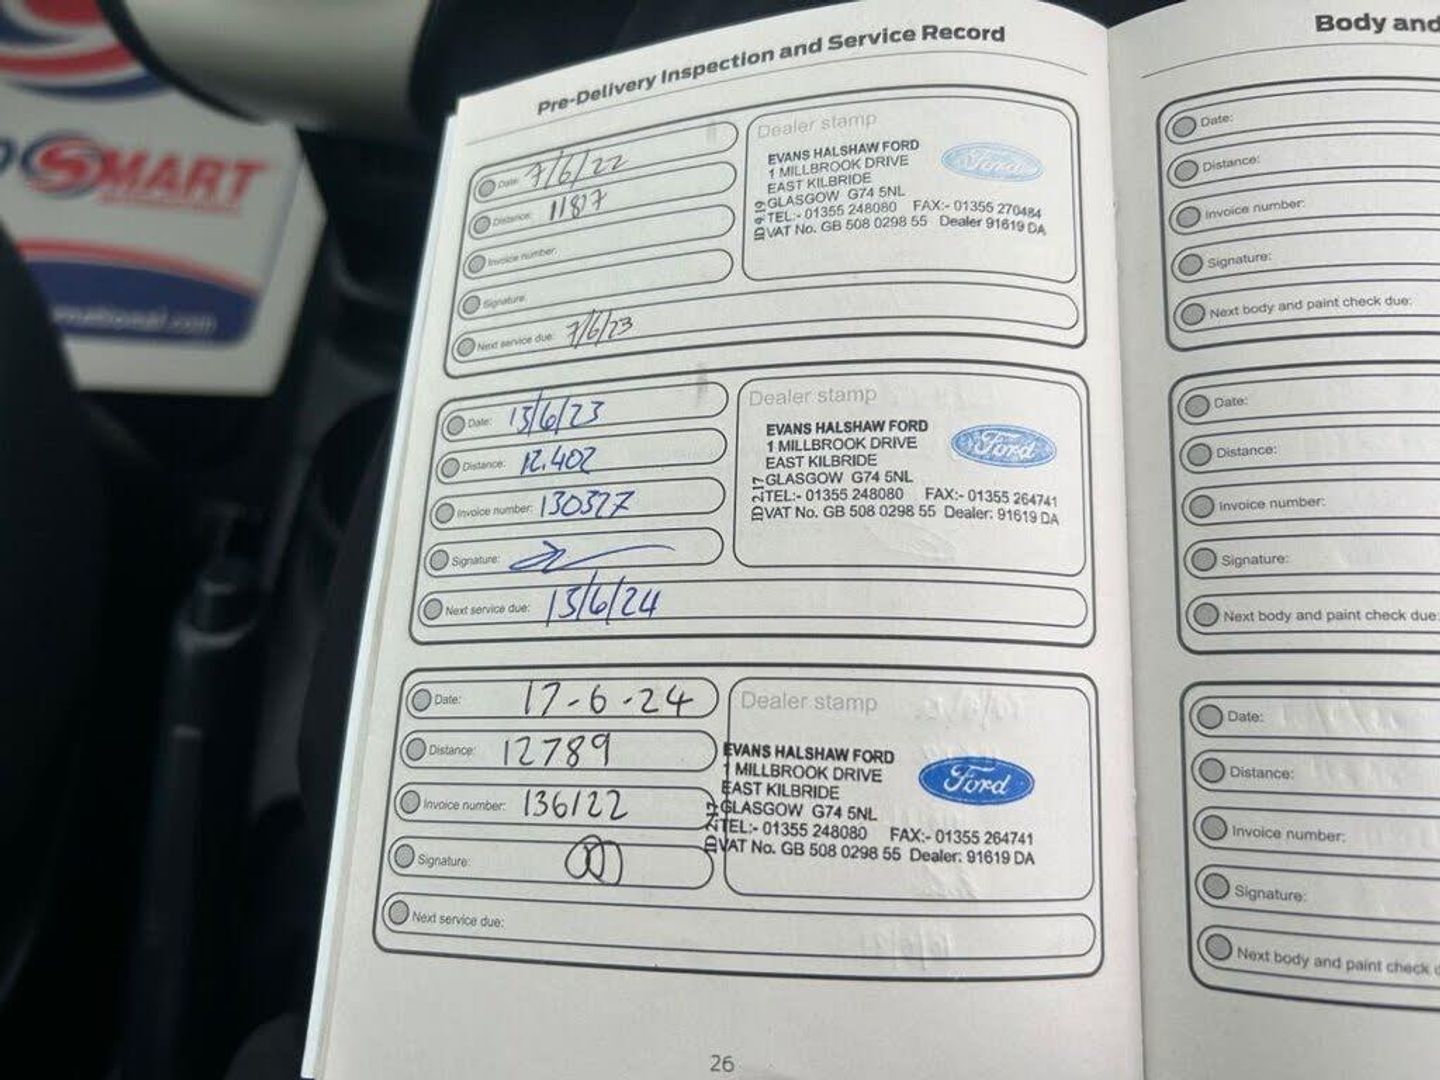 SMART
Pre-Delivery Inspection and Service Record
Date: 7/6/22
Distance: 11817
Invoice number:
Signature:
Next service due: 7/6/23
Dealer stamp
EVANS HALSHAW FORD
1 MILLBROOK DRIVE
EAST KILBRIDE
GLASGOW G74 5NL
TEL:- 01355 248080 FAX:- 01355 270484
VAT No. GB 508 0298 55 Dealer 91619 DA
ID 9.19
Ford
Date: 13/6/23
Distance: 12.402
Invoice number: 130327
Signature:
Next service due: 13/6/24
Dealer stamp
EVANS HALSHAW FORD
1 MILLBROOK DRIVE
EAST KILBRIDE
GLASGOW G74 5NL
TEL:- 01355 248080 FAX:- 01355 264741
VAT No. GB 508 0298 55 Dealer: 91619 DA
ID 2.17
Ford
Date: 17-6-24
Distance: 12789
Invoice number: 136122
Signature:
Next service due:
Dealer stamp
EVANS HALSHAW FORD
1 MILLBROOK DRIVE
EAST KILBRIDE
GLASGOW G74 5NL
TEL:- 01355 248080 FAX:- 01355 264741
VAT No. GB 508 0298 55 Dealer: 91619 DA
ID 2.17
Ford
26
Body and
Date:
Distance:
Invoice number:
Signature:
Next body and paint check due:
Date:
Distance:
Invoice number:
Signature:
Next body and paint check due:
Date:
Distance:
Invoice number:
Signature:
Next body and paint check